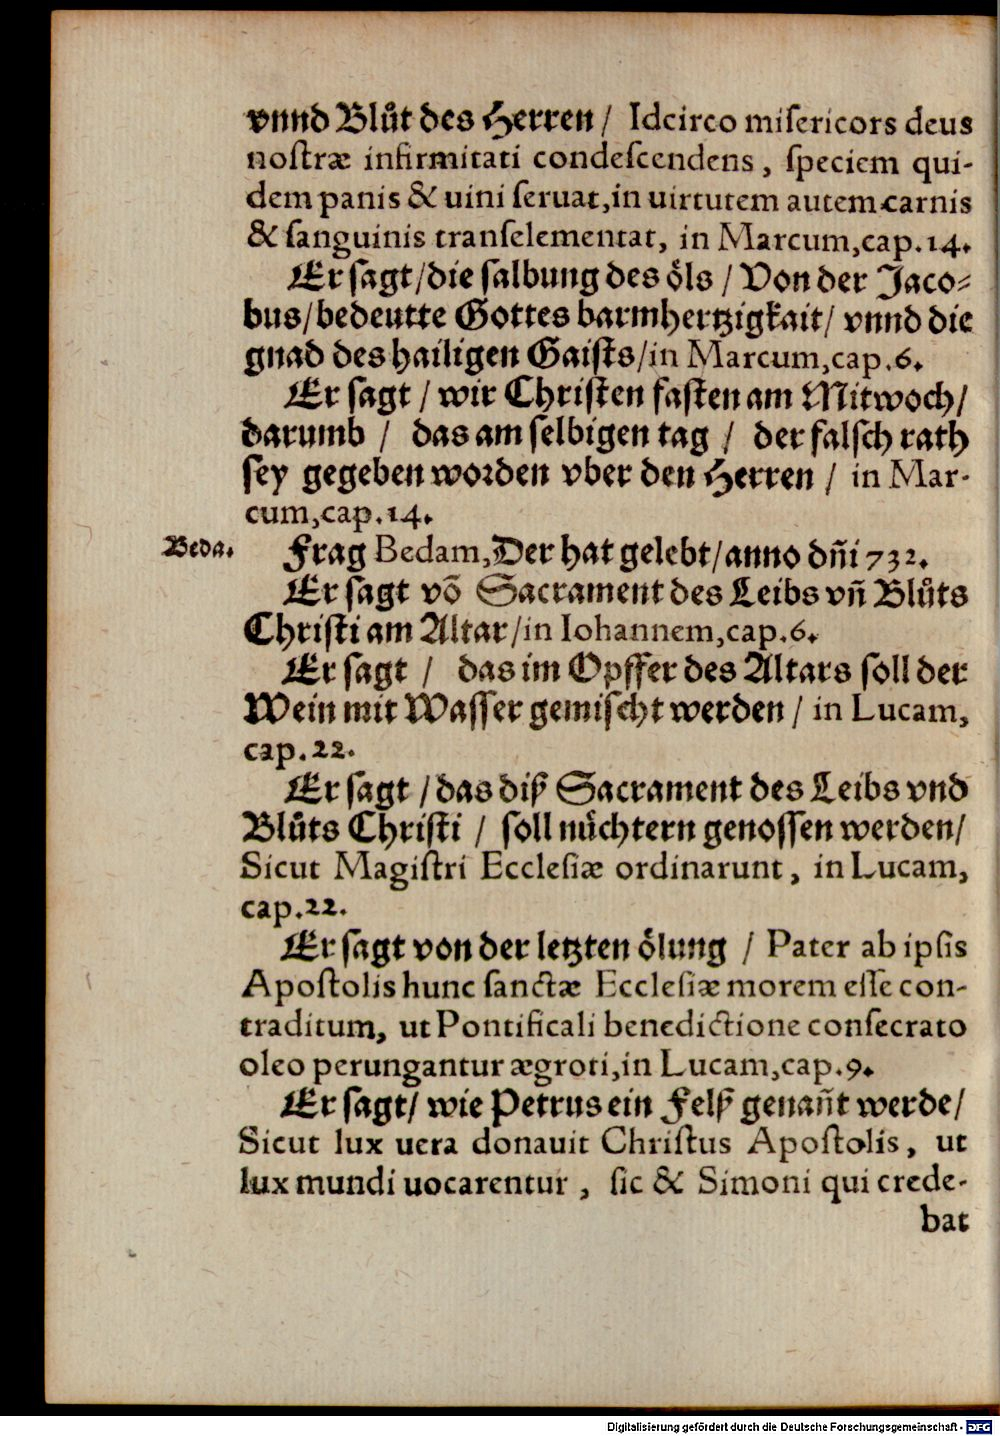 vnnd Blůt des Herren / Idcirco miſericors deus
noſtræ infirmitati condeſcendens, ſpeciem qui-
dem panis & uini ſeruat, in uirtutem autem carnis
& ſanguinis tranſelementat, in Marcum, cap. 14.
Er ſagt / die ſalbung des öls / Von der Jaco-
bus / bedeutte Gottes barmhertzigkait / vnnd die
gnad des hailigen Gaiſts / in Marcum, cap. 6.
Er ſagt / wir Chriſten faſten am Mitwoch /
darumb / das am ſelbigen tag / der falſch rath
ſey gegeben worden vber den Herren / in Mar-
cum, cap. 14.
Beda. Frag Bedam, Der hat gelebt / anno dñi 732.
Er ſagt võ Sacrament des Leibs vñ Blůts
Chriſti am Altar / in Iohannem, cap. 6.
Er ſagt / das im Opffer des Altars ſoll der
Wein mit Waſſer gemiſcht werden / in Lucam,
cap. 22.
Er ſagt / das diß Sacrament des Leibs vnd
Blůts Chriſti / ſoll nüchtern genoſſen werden /
Sicut Magiſtri Eccleſiæ ordinarunt, in Lucam,
cap. 22.
Er ſagt von der letzten ölung / Pater ab ipſis
Apoſtolis hunc ſanctæ Eccleſiæ morem eſſe con-
traditum, ut Pontificali benedictione conſecrato
oleo perungantur ægroti, in Lucam, cap. 9.
Er ſagt / wie Petrus ein Felß genañt werde /
Sicut lux uera donauit Chriſtus Apoſtolis, ut
lux mundi uocarentur, ſic & Simoni qui crede-
bat
Digitalisierung gefördert durch die Deutsche Forschungsgemeinschaft - DFG